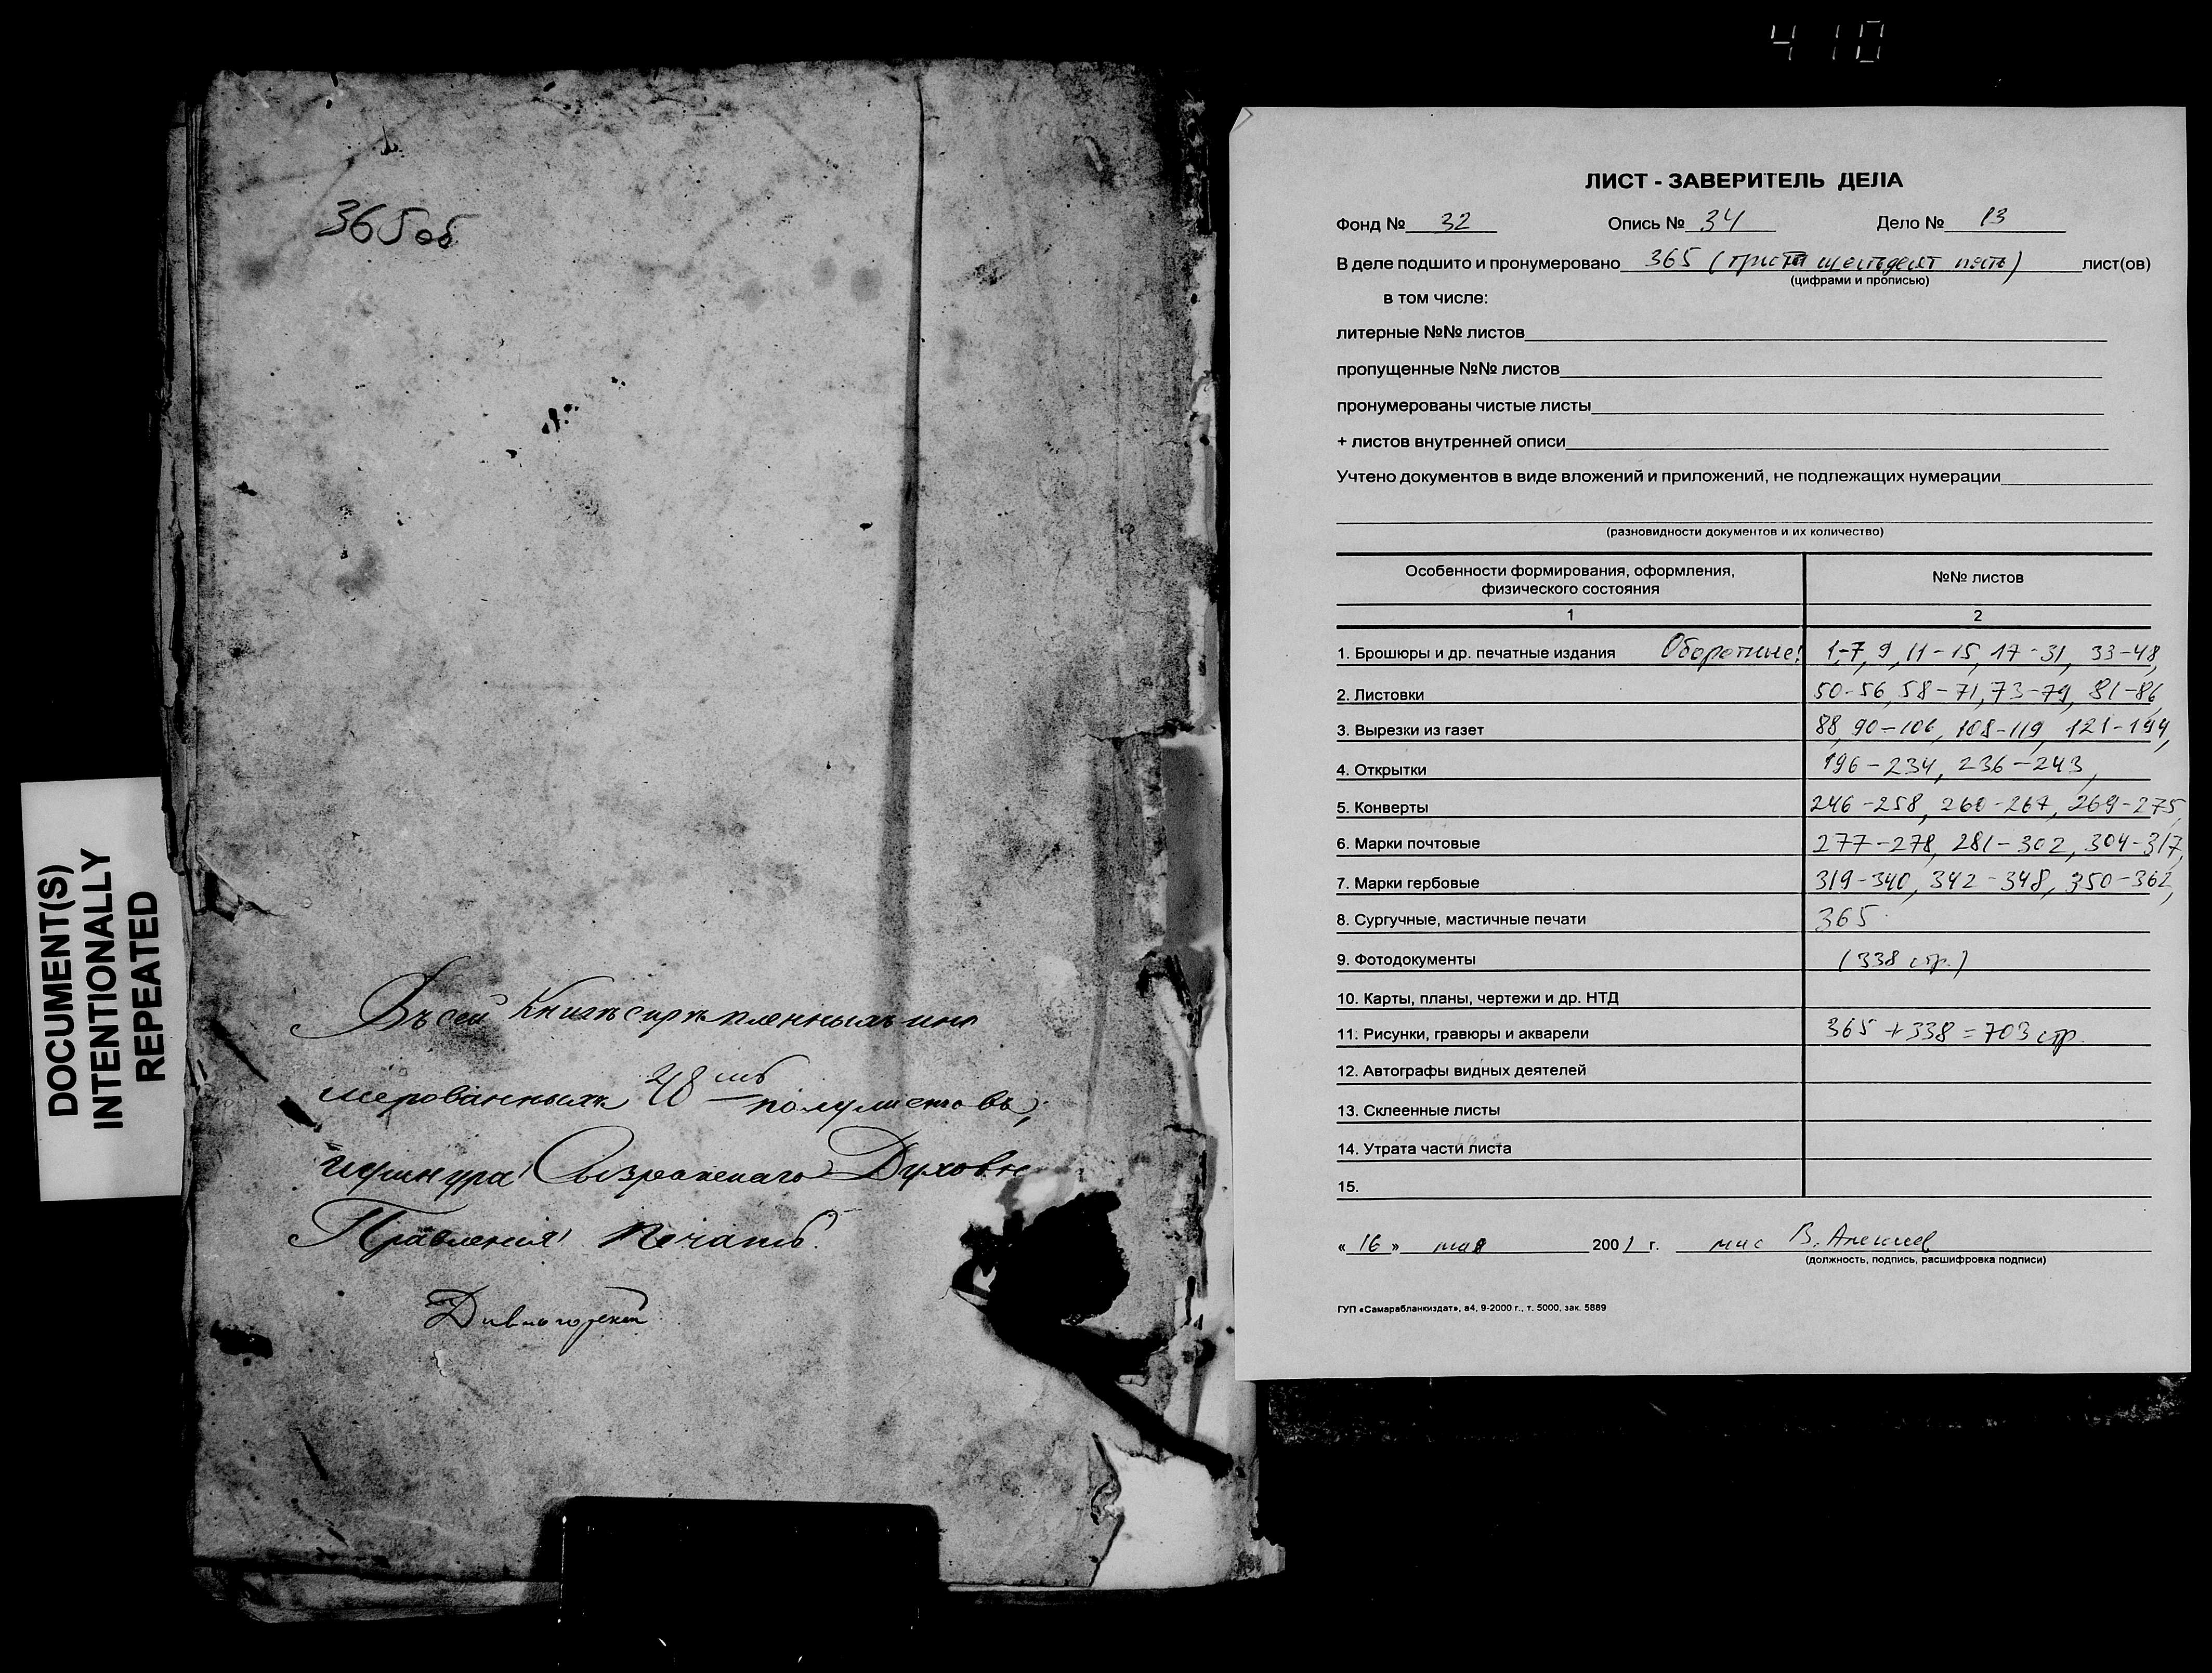 410
365об
DOCUMENT(S)
INTENTIONALLY
REPEATED
Въ сей Книгѣ скрѣпленныхъ и ну
мерованныхъ 48мь полулистовъ,
и у шнура Сызранскаго Духовн
Правления печать.
ЛИСТ - ЗАВЕРИТЕЛЬ ДЕЛА
Фонд № 32 Опись № 34 Дело № 13
В деле подшито и пронумеровано 365 (триста шестьдесят пять) лист(ов)
(цифрами и прописью)
в том числе:
литерные №№ листов
пропущенные №№ листов
пронумерованы чистые листы
+ листов внутренней описи
Учтено документов в виде вложений и приложений, не подлежащих нумерации
(разновидности документов и их количество)
Особенности формирования, оформления, №№ листов
физического состояния
1 2
1. Брошюры и др. печатные издания Оборотные: 1-7, 9, 11-15, 17-31, 33-48,
2. Листовки 50-56, 58-71, 73-79, 81-86,
3. Вырезки из газет 88, 90-106, 108-119, 121-194,
4. Открытки 196-234, 236-243,
5. Конверты 246-258, 260-267, 269-275,
6. Марки почтовые 277-278, 281-302, 304-317,
7. Марки гербовые 319-340, 342-348, 350-362,
8. Сургучные, мастичные печати 365.
9. Фотодокументы (338 стр.)
10. Карты, планы, чертежи и др. НТД
11. Рисунки, гравюры и акварели 365 + 338 = 703 стр.
12. Автографы видных деятелей
13. Склеенные листы
14. Утрата части листа
15.
« 16 » мая 2001 г. мнс В. Алексеев
(должность, подпись, расшифровка подписи)
ГУП «Самарабланкиздат», а4, 9-2000 г., т. 5000, зак. 5889